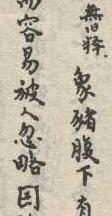 無旧释。象豬腹下有
容易被人忽略因